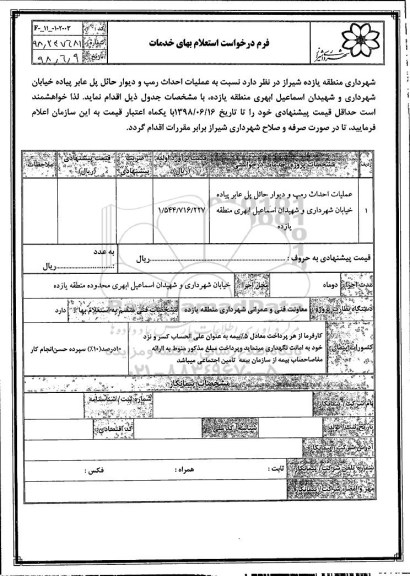 فرم درخواست استعلام بهای خدمات
۴۰-۱۱-۰۱-۲۰۰۳
۹۸/۲۴۷۶۸۱
۹۸/۶/۹
شهرداری منطقه یازده شیراز در نظر دارد نسبت به عملیات احداث رمپ و دیوار حائل پل عابر پیاده خیابان
شهرداری و شهیدان اسماعیل ابهری منطقه یازده، با مشخصات جدول ذیل اقدام نماید. لذا خواهشمند
است حداقل قیمت پیشنهادی خود را تا تاریخ ۱۳۹۸/۰۶/۱۶با یکماه اعتبار قیمت به این سازمان اعلام
فرمایید، تا در صورت صرفه و صلاح شهرداری شیراز برابر مقررات اقدام گردد.
ردیف
قیمت پیشنهادی
(ریال)
ملاحظات
۱
عملیات احداث رمپ و دیوار حائل پل عابر پیاده
خیابان شهرداری و شهیدان اسماعیل ابهری منطقه
یازده
۱/۵۴۴/۷۱۶/۲۲۷
قیمت پیشنهادی به حروف : ریال
به عدد
ریال
مدت اجرا
دوماه
محل اجرا
خیابان شهرداری و شهیدان اسماعیل ابهری محدوده منطقه یازده
دستگاه نظارت
معاونت فنی و عمرانی شهرداری منطقه یازده
مشخصات فنی منضم به استعلام بها
دارد
کسورات
کارفرما از هر پرداخت معادل ۵٪بیمه به عنوان علی الحساب کسر و نزد
خود به امانت نگهداری مینماید وپرداخت مبلغ مذکور منوط به ارائه
مفاصاحساب بیمه از سازمان بیمه تامین اجتماعی میباشد
۱۰درصد(۱۰٪) سپرده حسن‌انجام کار
مشخصات پیمانکار
شماره ثبت / شناسنامه
کد اقتصادی
ثابت :
همراه :
فکس :